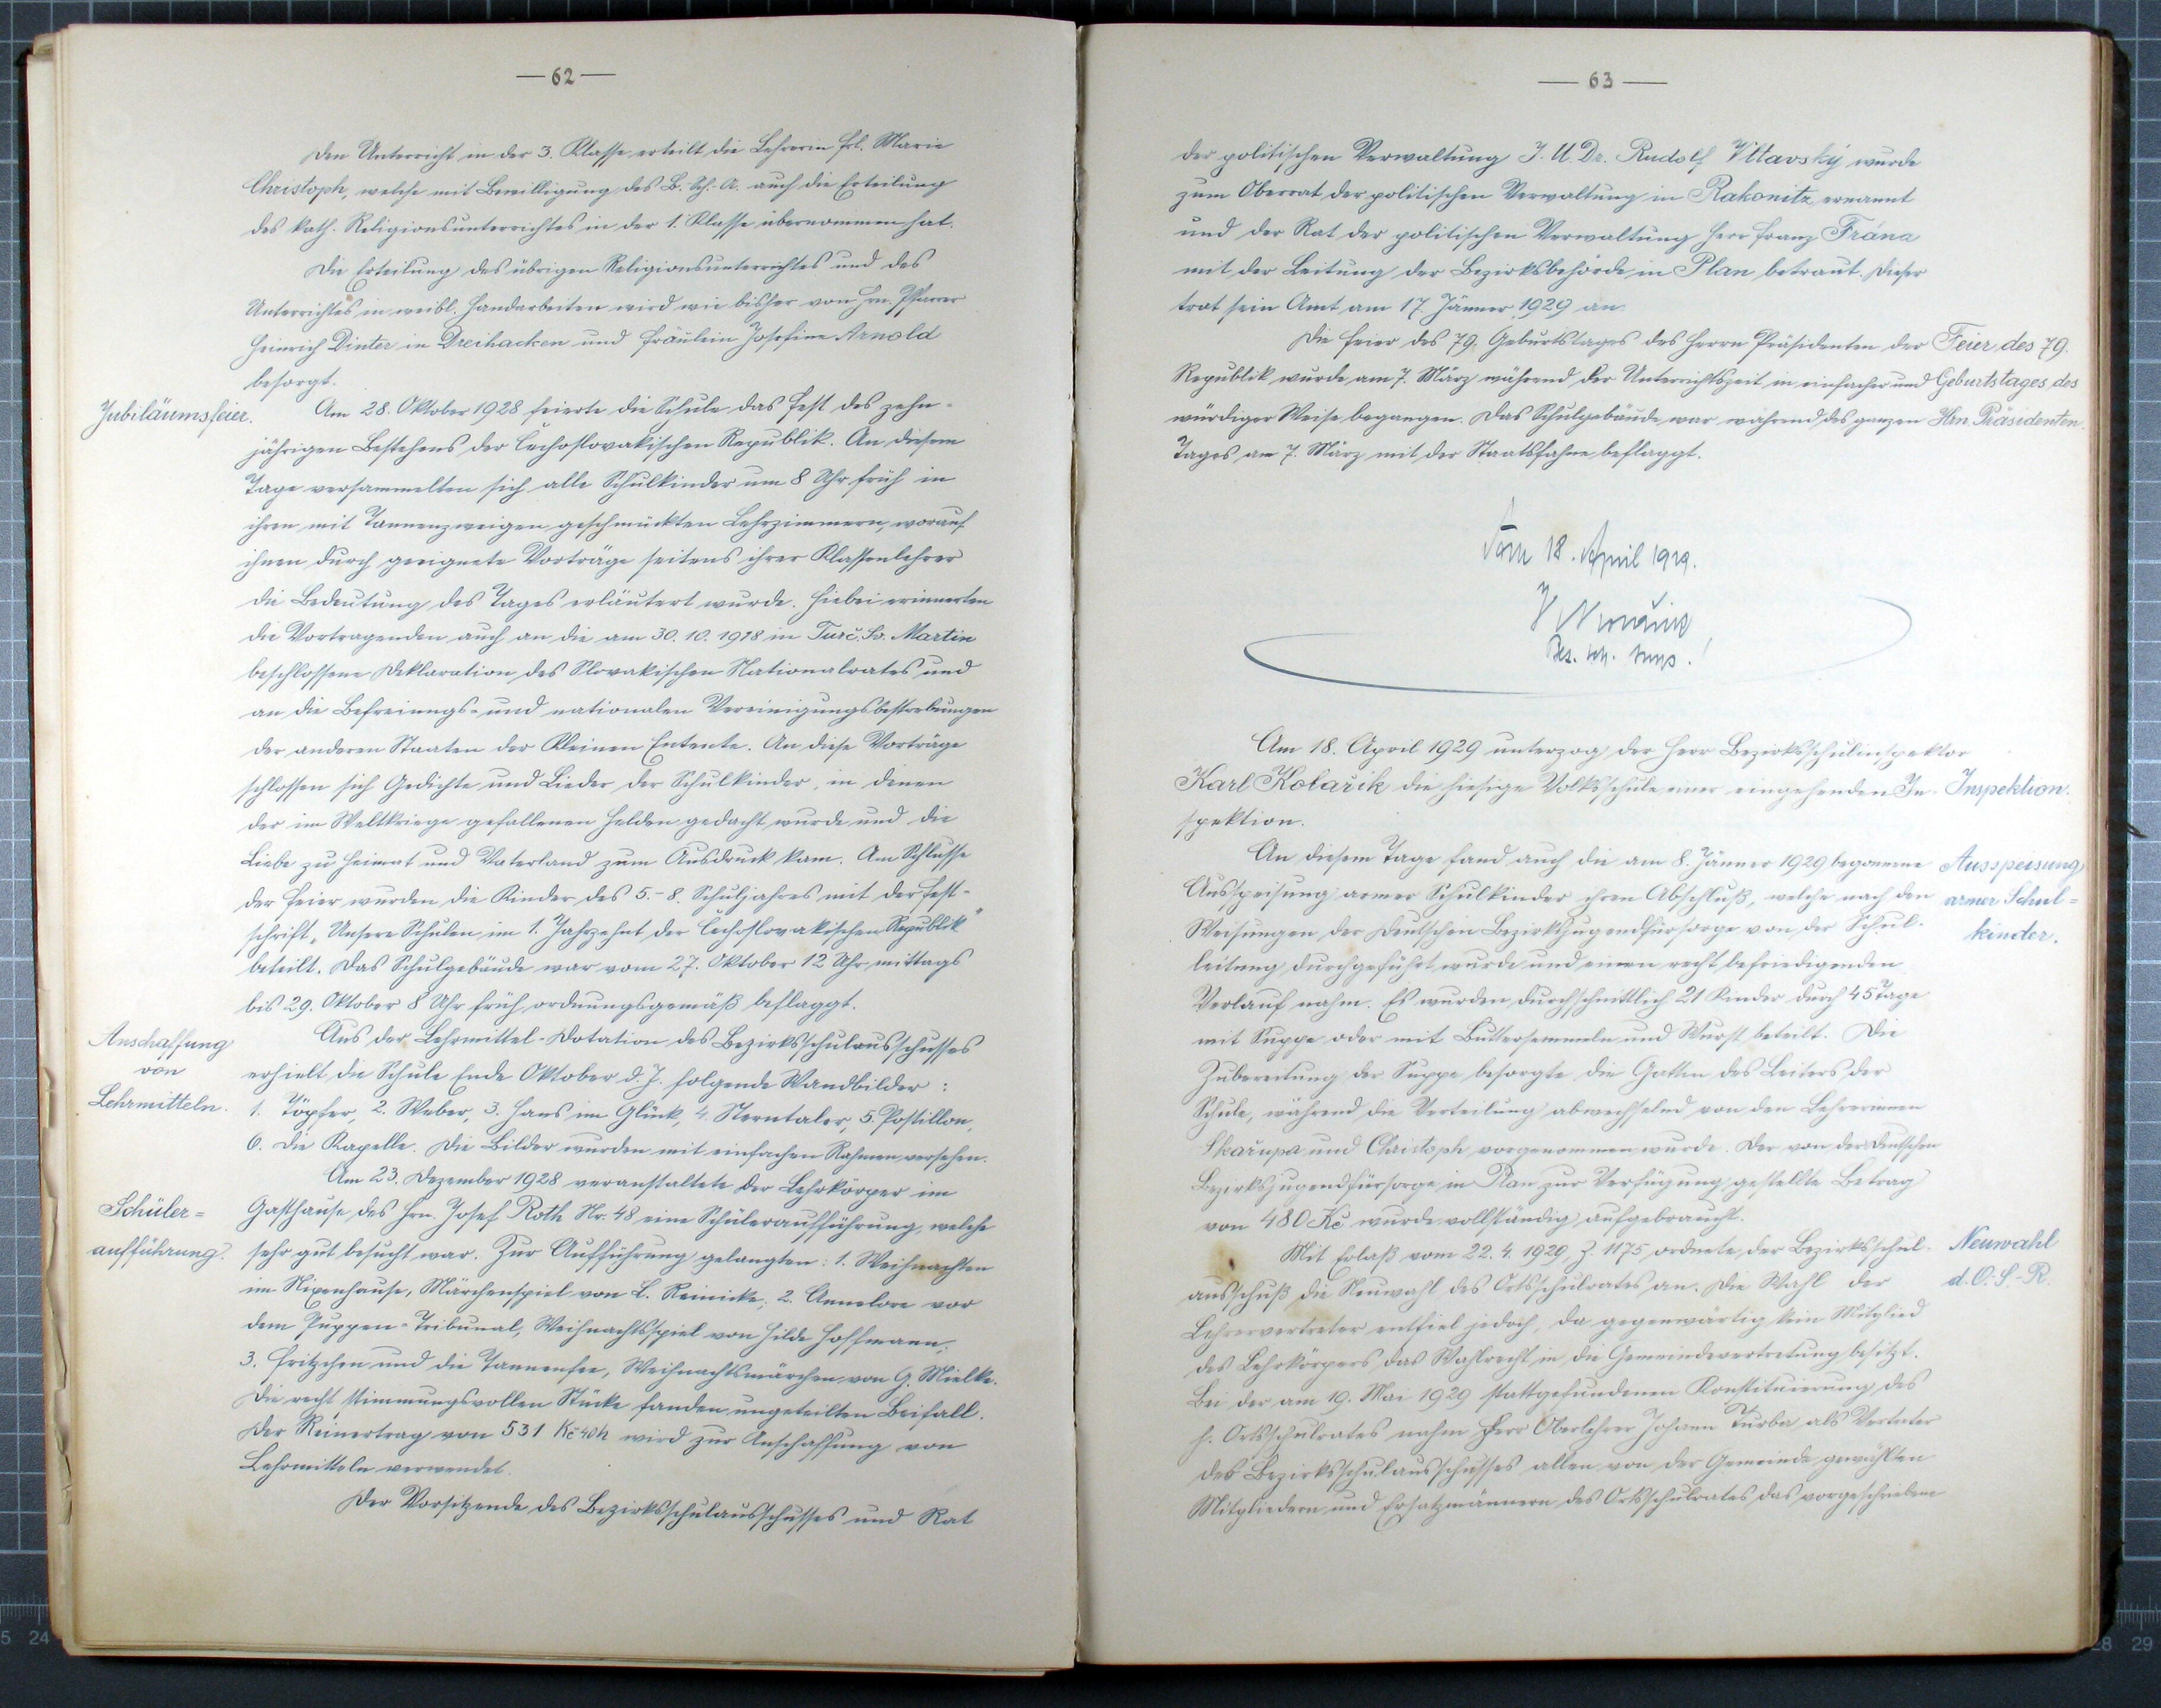 — 62 —
Den Unterricht in der 3. Klasse erteilt die Lehrerin Frl. Marie
Christoph, welche mit Bewilligung des B.-Sch.-A. auch die Erteilung
des kath. Religionsunterrichtes in der 1. Klasse übernommen hat.
Die Erteilung des übrigen Religionsunterrichtes und des
Unterrichtes in weibl. Handarbeiten wird wie bisher von Hrn. Pfarrer
Heinrich Dinter in Dreihacken und Fräulein Josefine Arnold
besorgt.
Jubiläumsfeier.
Am 28. Oktober 1928 feierte die Schule das Fest des zehn-
jährigen Bestehens der čechoslovakischen Republik. An diesem
Tage versammelten sich alle Schulkinder um 8 Uhr früh in
ihren mit Tannenzweigen geschmückten Lehrzimmern, worauf
ihnen durch geeignete Vorträge seitens ihrer Klassenlehrer
die Bedeutung des Tages erläutert wurde. Hiebei erinnerten
die Vortragenden auch an die am 30. 10. 1918 in Turč. Sv. Martin
beschlossene Deklaration des Slovakischen Nationalrates und
an die Befreiungs- und nationalen Vereinigungsbestrebungen
der anderen Staaten der Kleinen Entente. An diese Vorträge
schlossen sich Gedichte und Lieder der Schulkinder, in denen
der im Weltkriege gefallenen Helden gedacht wurde und die
Liebe zu Heimat und Vaterland zum Ausdruck kam. Am Schlusse
der Feier wurden die Kinder des 5.-8. Schuljahres mit der Fest-
schrift „Unsere Schulen im 1. Jahrzehnt der čechoslovakischen Republik"
beteilt. Das Schulgebäude war vom 27. Oktober 12 Uhr mittags
bis 29. Oktober 8 Uhr früh ordnungsgemäß beflaggt.
Anschaffung
von
Lehrmitteln.
Aus der Lehrmittel-Dotation des Bezirksschulausschusses
erhielt die Schule Ende Oktober d. J. folgende Wandbilder:
1. Töpfer, 2. Weber, 3. Hans im Glück, 4. Sterntaler, 5. Postillon,
6. Die Kapelle. Die Bilder wurden mit einfachen Rahmen versehen.
Schüler=
aufführung.
Am 23. Dezember 1928 veranstaltete der Lehrkörper im
Gasthause des Hrn. Josef Roth Nr. 48 eine Schüleraufführung, welche
sehr gut besucht war. Zur Aufführung gelangten: 1. Weihnachten
im Nixenhause, Märchenspiel von L. Reinicke; 2. Annelore vor
dem Puppen-Tribunal, Weihnachtsspiel von Hilde Hoffmann;
3. Fritzchen und die Tannenfee, Weihnachtsmärchen von G. Mielke.
Die recht stimmungsvollen Stücke fanden ungeteilten Beifall.
Der Reinertrag von 531 Kč 40 h wird zur Anschaffung von
Lehrmitteln verwendet.
Der Vorsitzende des Bezirksschulausschusses und Rat
— 63 —
der politischen Verwaltung J. U. Dr. Rudolf Vltavský wurde
zum Oberrat der politischen Verwaltung in Rakonitz ernannt
und der Rat der politischen Verwaltung Herr Franz Frána
mit der Leitung der Bezirksbehörde in Plan betraut. Dieser
trat sein Amt am 17. Jänner 1929 an.
Feier des 79.
Geburtstages des
Hrn. Präsidenten.
Die Feier des 79. Geburtstages des Herrn Präsidenten der
Republik wurde am 7. März während der Unterrichtszeit in einfacher und
würdiger Weise begangen. Das Schulgebäude war während des ganzen
Tages am 7. März mit der Staatsfahne beflaggt.
18. April 1929.
Am 18. April 1929 unterzog der Herr Bezirksschulinspektor
Karl Kolařik die hiesige Volksschule einer eingehenden In-
spektion.
Inspektion.
Ausspeisung
armer Schul=
kinder.
An diesem Tage fand auch die am 8. Jänner 1929 begonnene
Ausspeisung armer Schulkinder ihren Abschluß, welche nach den
Weisungen der Deutschen Bezirksjugendfürsorge von der Schul-
leitung durchgeführt wurde und einen recht befriedigenden
Verlauf nahm. Es wurden durchschnittlich 21 Kinder durch 45 Tage
mit Suppe oder mit Buttersemmeln und Wurst beteilt. Die
Zubereitung der Suppe besorgte die Gattin des Leiters der
Schule, während die Verteilung abwechselnd von den Lehrerinnen
Skařupa und Christoph vorgenommen wurde. Der von der Deutschen
Bezirksjugendfürsorge in Plan zur Verfügung gestellte Betrag
von 480 Kč wurde vollständig aufgebraucht.
Neuwahl
d. O.-S.-R.
Mit Erlaß vom 22. 4. 1929, Z. 1175 ordnete der Bezirksschul-
ausschuß die Neuwahl des Ortsschulrates an. Die Wahl der
Lehrervertreter entfiel jedoch, da gegenwärtig kein Mitglied
des Lehrkörpers das Wahlrecht in die Gemeindevertretung besitzt.
Bei der am 19. Mai 1929 stattgefundenen Konstituierung des
h. Ortsschulrates nahm Herr Oberlehrer Johann Turba als Vertreter
des Bezirksschulausschusses allen von der Gemeinde gewählten
Mitgliedern und Ersatzmännern des Ortsschulrates das vorgeschriebene